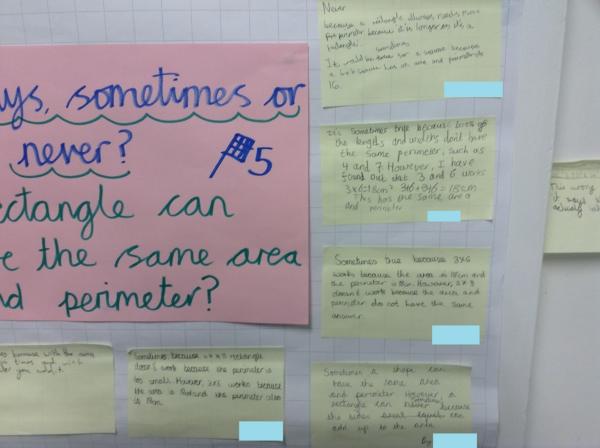 ys, sometimes or
never?
#5
ctangle can
e the same area
d perimeter?
Never
because a rectangle always needs more
perimeter because it is longer as it's a
rectangle.
sometimes
It could be true for a square because
a 4x4 square has an area and perimeter of
16.
It's Sometimes true because lots of
the lengths and widths don't have
the same perimeter, such as
4 and 7 However, I have
found out that 3 and 6 works
3x6=18cm² 3+6+3+6=18cm
This has the same area
and perimeter
Sometimes true because 3x6
works because the area is 18cm and
the perimeter is 18cm. However,
doesn't work because the area and
perimeter do not have the same
answer.
Sometimes a shape can
have the same area
and perimeter However a
rectangle can never because
sometimes
the sides equal can
add up to the area
By
Sometimes because a rectangle
doesn't work because the perimeter is
too small. However, 3x6 works because
the area is and the perimeter also
is 18cm.
because with the area
times and with
you add it
This wrong
it says
actually